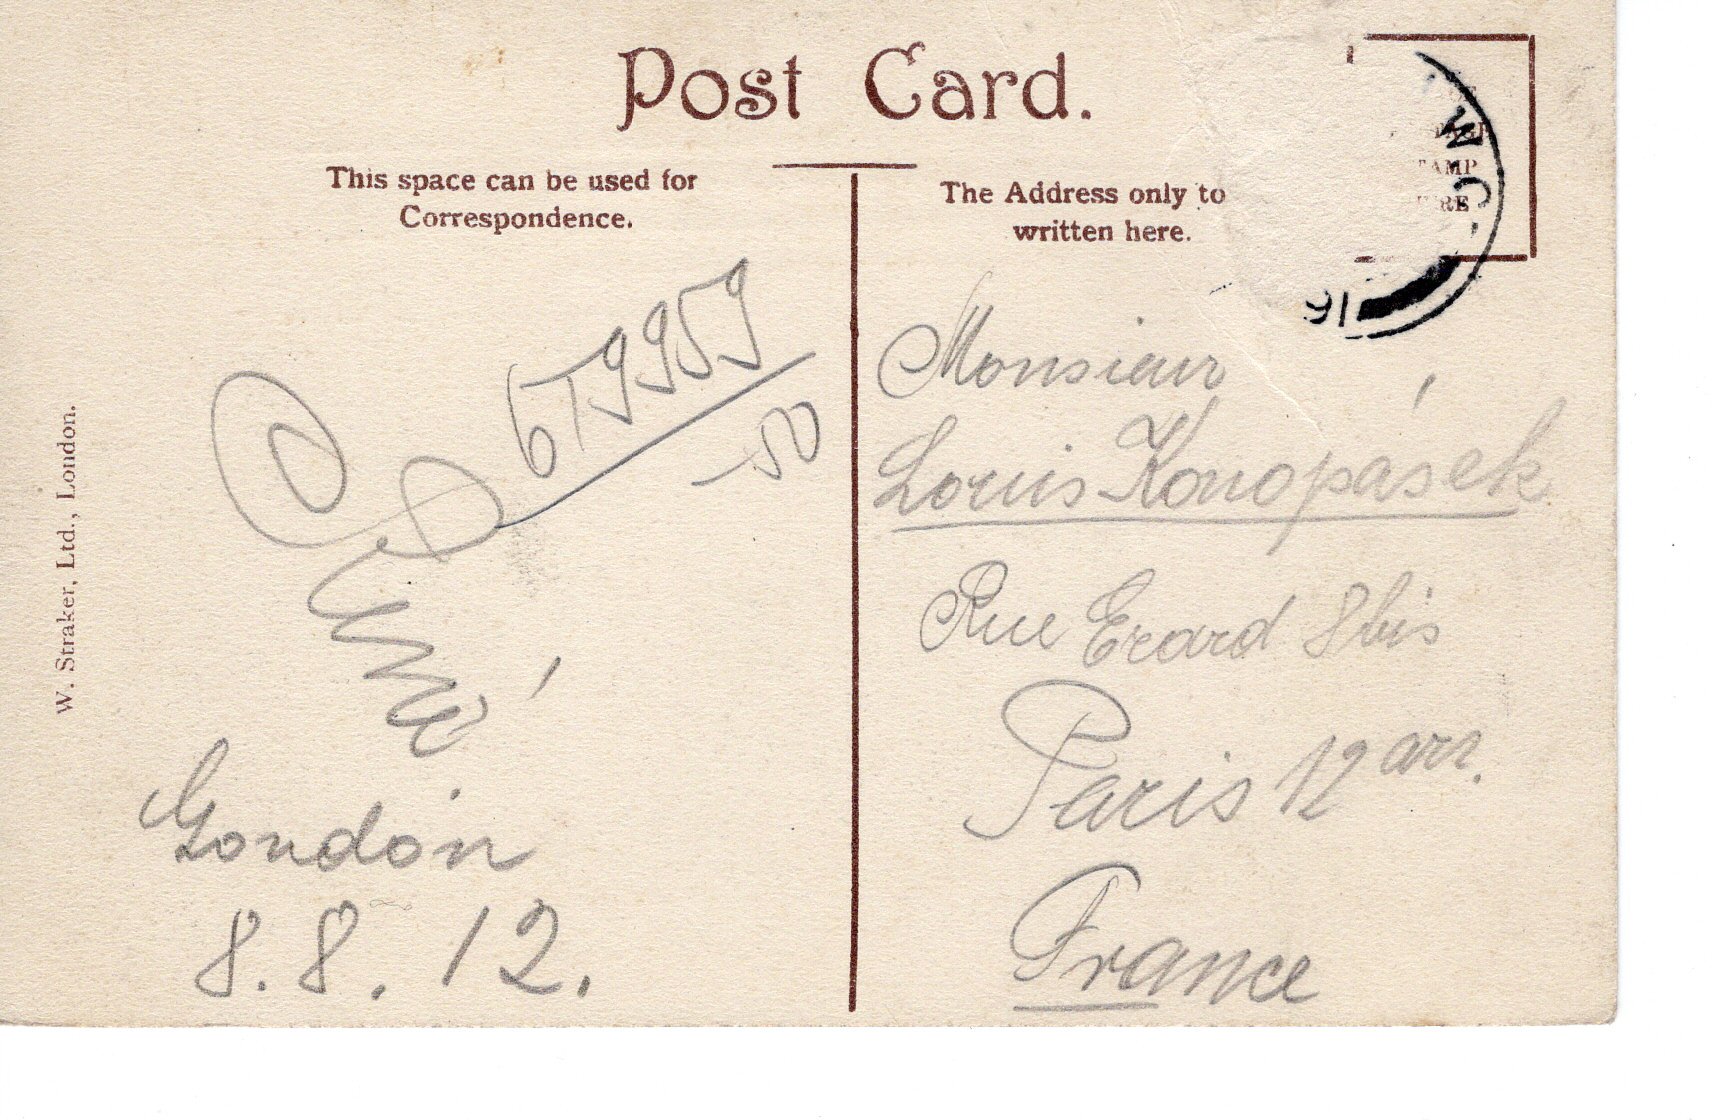 Post Card.
This space can be used for
Correspondence.
The Address only to
written here.
TAMP
W. Straker, Ltd., London.
6T9959
-50
London
8.8.12.
Monsieur
Louis Konopásek
Rue Erard 8bis
Paris 12 arr.
France